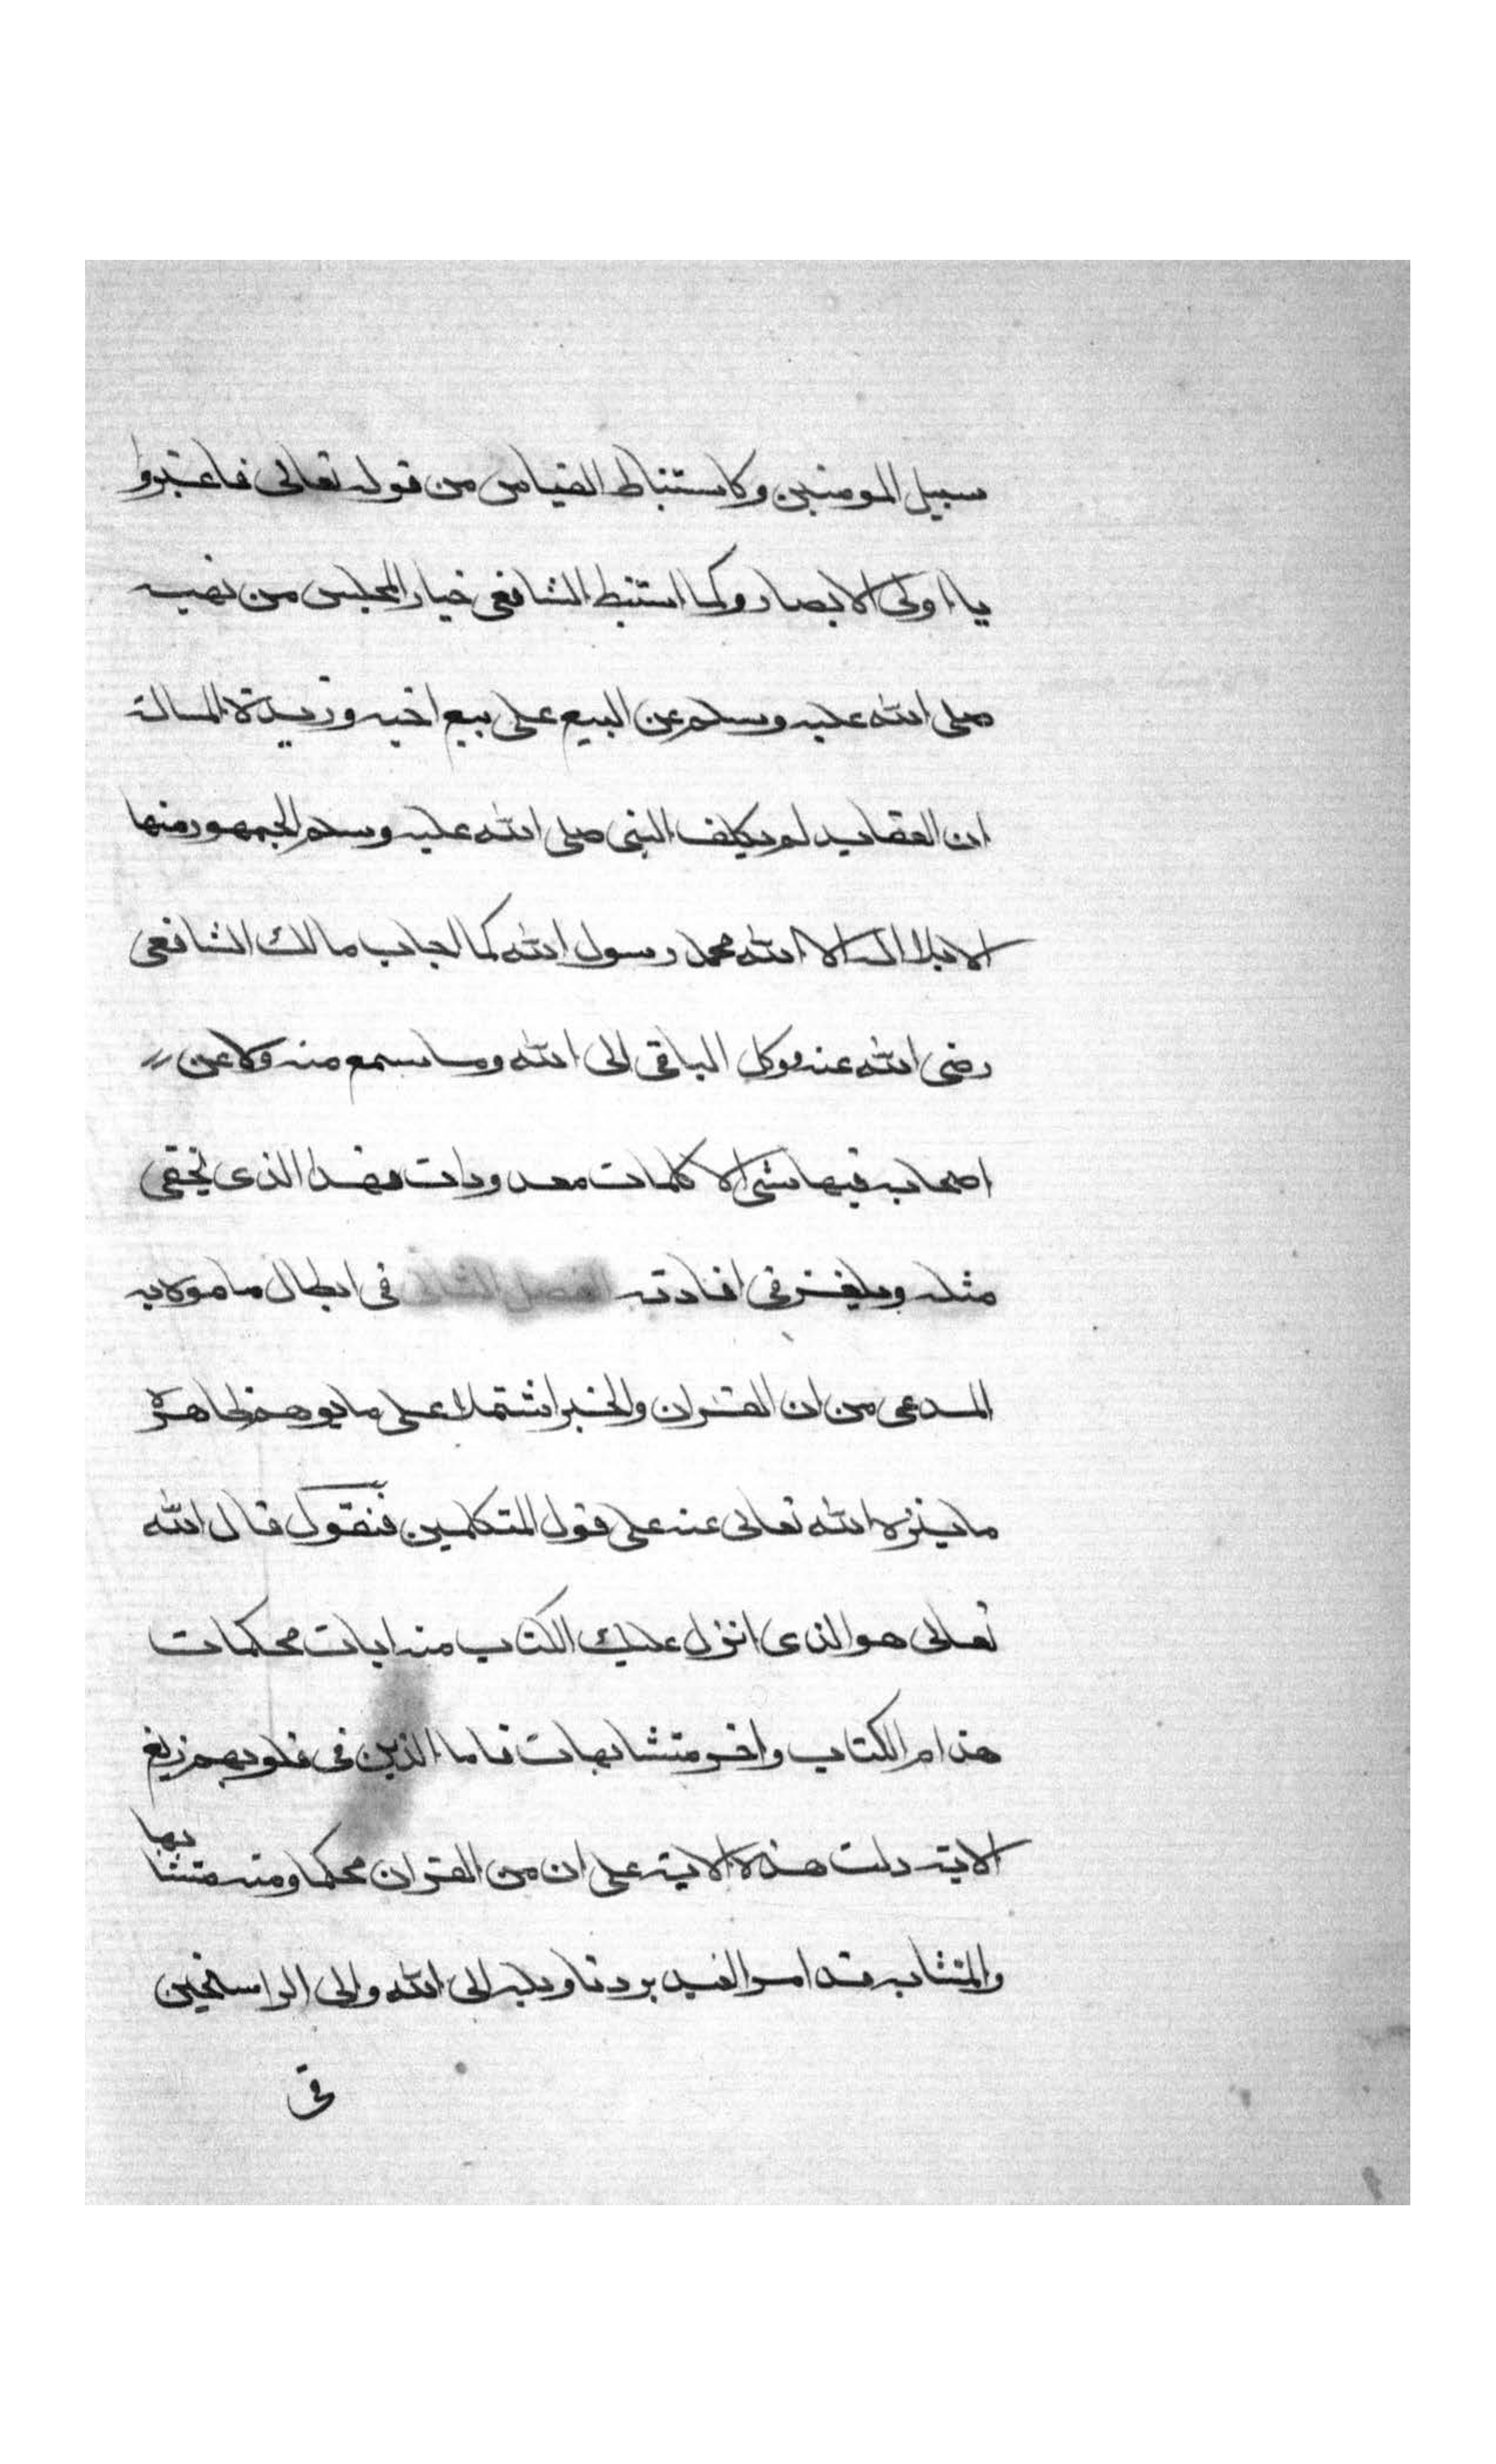 سبيل المومنين وكاستنباط القياس من قوله تعالى فاعتبروا
يا اولى الابصار وكما استنبط الشافعى خيار المجلس من نهيه
صلى الله عليه وسلم عن البيع على بيع اخيه وزبدة المسالة
ان العقايد لم يكلف النبى صلى الله عليه وسلم الجمهور منها
الا بلا اله الا الله محمد رسول الله كما اجاب مالك الشافعى
رضى الله عنه ووكل الباقى الى الله وما سمع منه ولا عن
اصحابه فيها شى الا كلمات معدودات فهذا الذى يخفى
مثله ويلغز فى افادته الفصل الثانى فى ابطال ما موه به
المدعى من ان القران والخبر اشتملا على ما يوهم ظاهره
ما ينزه الله تعالى عنه على قول المتكلمين فنقول قال الله
تعالى هو الذى انزل عليك الكتاب منه ايات محكمات
هن ام الكتاب واخر متشابهات فاما الذين فى قلوبهم زيغ
الاية دلت هذه الاية على ان من القران محكما ومنه متشابها
والمتشابه قد امر العبد برد تاويله الى الله والى الراسخين
فى